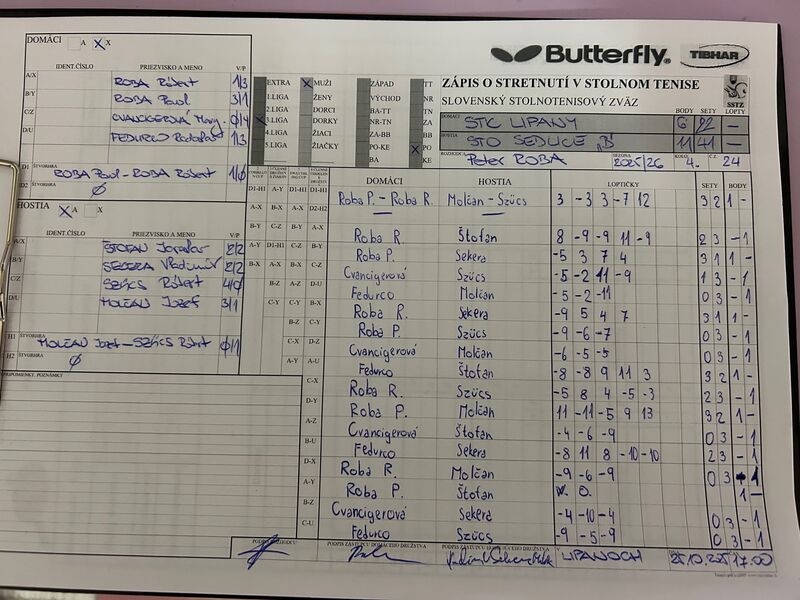 DOMÁCI A X X
Butterfly
TIBHAR
IDENT.ČÍSLO PRIEZVISKO A MENO V/P
ZÁPIS O STRETNUTÍ V STOLNOM TENISE
SLOVENSKÝ STOLNOTENISOVÝ ZVÄZ
SSTZ
BODY SETY LOPTY
A/X ROBA Róbert 1/3
B/Y ROBA Pavol 3/1
C/Z CVANCIGEROVÁ 0/4
D/U FEDURCO Radoslav 1/3
ŠTVORHRA
D1 ROBA Pavol - ROBA Róbert 1/0
D2 Ø
EXTRA X MUŽI ZÁPAD TT
1.LIGA ŽENY VÝCHOD NR
2.LIGA DORCI BA-TT TN
X 3.LIGA DORKY NR-TN ZA
4.LIGA ŽIACI ZA-BB BB
5.LIGA ŽIAČKY PO-KE X PO
KE
DOMÁCI STK LIPANY 6 22 -
HOSTIA STO SEDLICE "B" 11 41 -
ROZHODCA Peter ROBA SEZONA 2025/26 KOLO 4. Č. 24
HOSTIA X A X
IDENT.ČÍSLO PRIEZVISKO A MENO V/P
A/X ŠTOFAN Jaroslav 2/2
B/Y SEKERA Vladimír 2/2
C/Z SZÜCS Róbert 4/0
D/U MOLČAN Jozef 3/1
ŠTVORHRA
H1 MOLČAN Jozef - SZÜCS Róbert 0/1
H2 Ø
PRIPOMIENKY, POZNÁMKY
DOMÁCI HOSTIA LOPTIČKY SETY BODY
Roba P. - Roba R. Molčan - Szücs 3 -3 3 -7 12 3 2 1 -
Roba R. Štofan 8 -9 -9 11 -9 2 3 - 1
Roba P. Sekera -5 3 7 4 3 1 1 -
Cvancigerová Szücs -5 -2 11 -9 1 3 - 1
Fedurco Molčan -5 -2 -11 0 3 - 1
Roba R. Sekera -9 5 4 7 3 1 1 -
Roba P. Szücs -9 -6 -7 0 3 - 1
Cvancigerová Molčan -6 -5 -5 0 3 - 1
Fedurco Štofan -8 -8 9 11 3 3 2 1 -
Roba R. Szücs -5 8 4 -5 -3 2 3 - 1
Roba P. Molčan 11 -11 -5 9 13 3 2 1 -
Cvancigerová Štofan -4 -6 -9 0 3 - 1
Fedurco Sekera -8 11 8 -10 -10 2 3 - 1
Roba R. Molčan -9 -6 -9 0 3 - 1
Roba P. Štofan W. O. 1 -
Cvancigerová Sekera -4 -10 -4 0 3 - 1
Fedurco Szücs -9 -5 -9 0 3 - 1
PODPIS ROZHODCU PODPIS ZÁSTUPCU DOMÁCEHO DRUŽSTVA PODPIS ZÁSTUPCU HOSŤUJÚCEHO DRUŽSTVA V LIPANOCH 25.10.2025 17.00